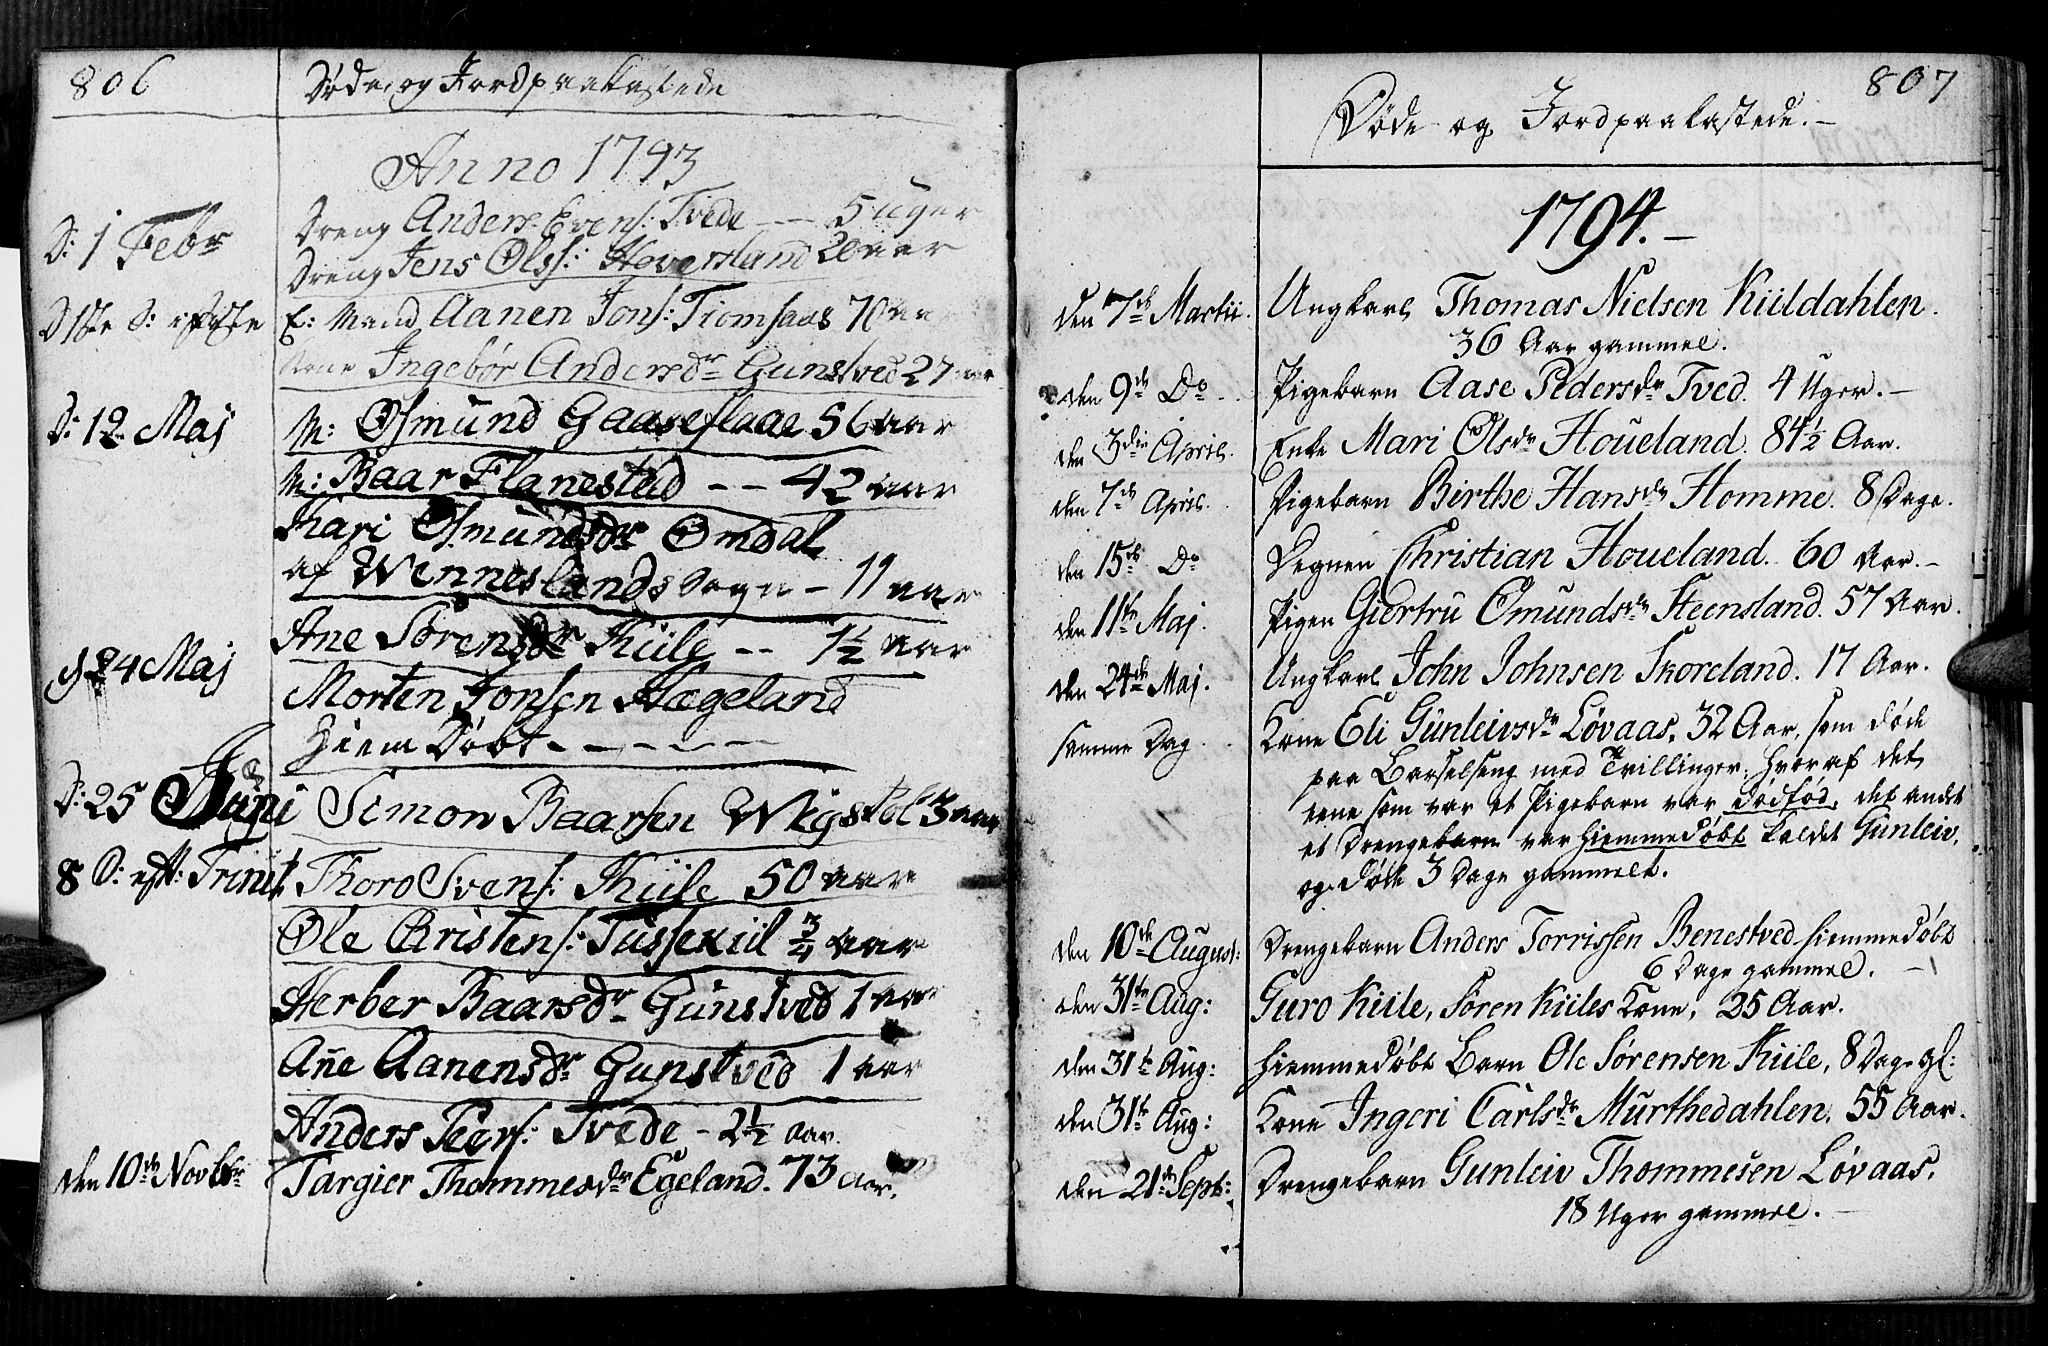 806
Døde og Jordpaakastede
Anno 1793
D: 1 Febr
Dreng Anders Evens: Tvede -- 5 uger
Dreng Jens Olss: Hoversland 20 aar
D 1ste S: i faste
E: Mand Aanen Jons: Tiomsaas 70 aar
Kone Ingebør Andersdr Gunstved 27 aar
D: 12 Maj
M: Osmund Gaaseflaae 56 aar
M: Baar Flanestad -- 42 aar
Kari Osmundsdr Omdal
af Wenneslands Sogn - 11 aar
Ane Sørensdr Kiile -- 1½ aar
d 24 Maj
Morten Jonsen Hægeland
Hiem Døbt - - - - -
D: 25 Juni
Simon Baarsen Wigstøl 3 aar
8 S: eft: Trinit
Thoro Svens: Kiile 50 aar
Ole Cristens: Tussekiil ¾ aar
Herber Baarsdr Gunstved 1 aar
Añe Aanensdr Gunstved 1 aar
Anders Peers: Tvede - 2½ aar.
den 10de Novbr
Targier Thommesdr Egeland. 73 aar.
807
Døde og Jordpaakastede. -
1794. -
den 7de Martii.
Ungkarl Thomas Nielsen Kiildahlen.
36 Aar gammel.
den 9de Do
Pigebarn Aase Pedersdr Tved. 4 Uger. -
den 3die April.
Enke Mari Olsdr Houeland. 84½ Aar.
den 7de April.
Pigebarn Birthe Hansdr Homme. 8 Dage.
den 15de Do
Degnen Christian Houeland. 60 Aar. -
den 11te Maj.
Pigen Giertru Omundsdr Steensland. 57 Aar.
den 24de Maj.
Ungkarl John Johnsen Skoreland. 17 Aar.
samme Dag
Kone Eli Gunleivsdr Løvaas. 32 Aar, som døde
paa Barselseng med Tvillinger, hvoraf det
eene som var et Pigebarn var dødfød, det andet
et Drengebarn var hiemmedøbt kaldet Gunleiv,
og døde 3 Dage gammelt.
den 10de August:
Drengebarn Anders Torrissen Benestved hiemmedøbt
6 Dage gammel. -
den 31te Aug:
Guro Kiile, Søren Kiiles Kone, 25 Aar.
den 31te Aug:
hiemmedøbt Barn Ole Sørensen Kiile, 8 Dage gl:
den 31te Aug:
Kone Ingeri Carlsdr Murthedahlen. 55 Aar.
den 21de Septr:
Drengebarn Gunleiv Thommesen Løvaas.
18 Uger gammel. -